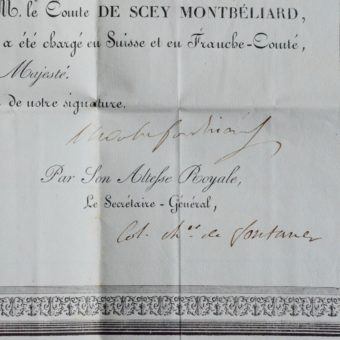 M. le Comte DE SCEY MONTBÉLIARD,
a été chargé en Suisse et en Franche-Comté,
Majesté.
de notre signature.
Par Son Altesse Royale,
Le Secrétaire-Général,
de